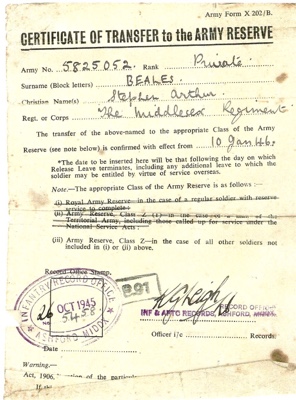 Army Form X 202/B.
CERTIFICATE OF TRANSFER to the ARMY RESERVE
Army No. 5825052. Rank Private
Surname (Block letters) BEALES
Christian Name(s) Stephen Arthur.
Regt. or Corps The Middlesex Regiment
The transfer of the above-named to the appropriate Class of the Army
Reserve (see note below) is confirmed with effect from 10 Jan 46.
*The date to be inserted here will be that following the day on which
Release Leave terminates, including any additional leave to which the
soldier may be entitled by virtue of service overseas.
Note.—The appropriate Class of the Army Reserve is as follows :—
(i) Royal Army Reserve—in the case of a regular soldier with reserve
service to complete:
(ii) Army Reserve, Class Z (T)—in the case of a man of the
Territorial Army, including those called up for service under the
National Service Acts:
(iii) Army Reserve, Class Z—in the case of all other soldiers not
included in (i) or (ii) above.
Record Office Stamp.
B91
INFANTRY RECORD OFFICE
26 OCT 1945
5458
ASHFORD, MIDDX
RECORD OFFICE
INF & APTC RECORDS, ASHFORD, MIDDX
Officer i/c Records.
Date
Warning:—
Act, 1906, of the
If th